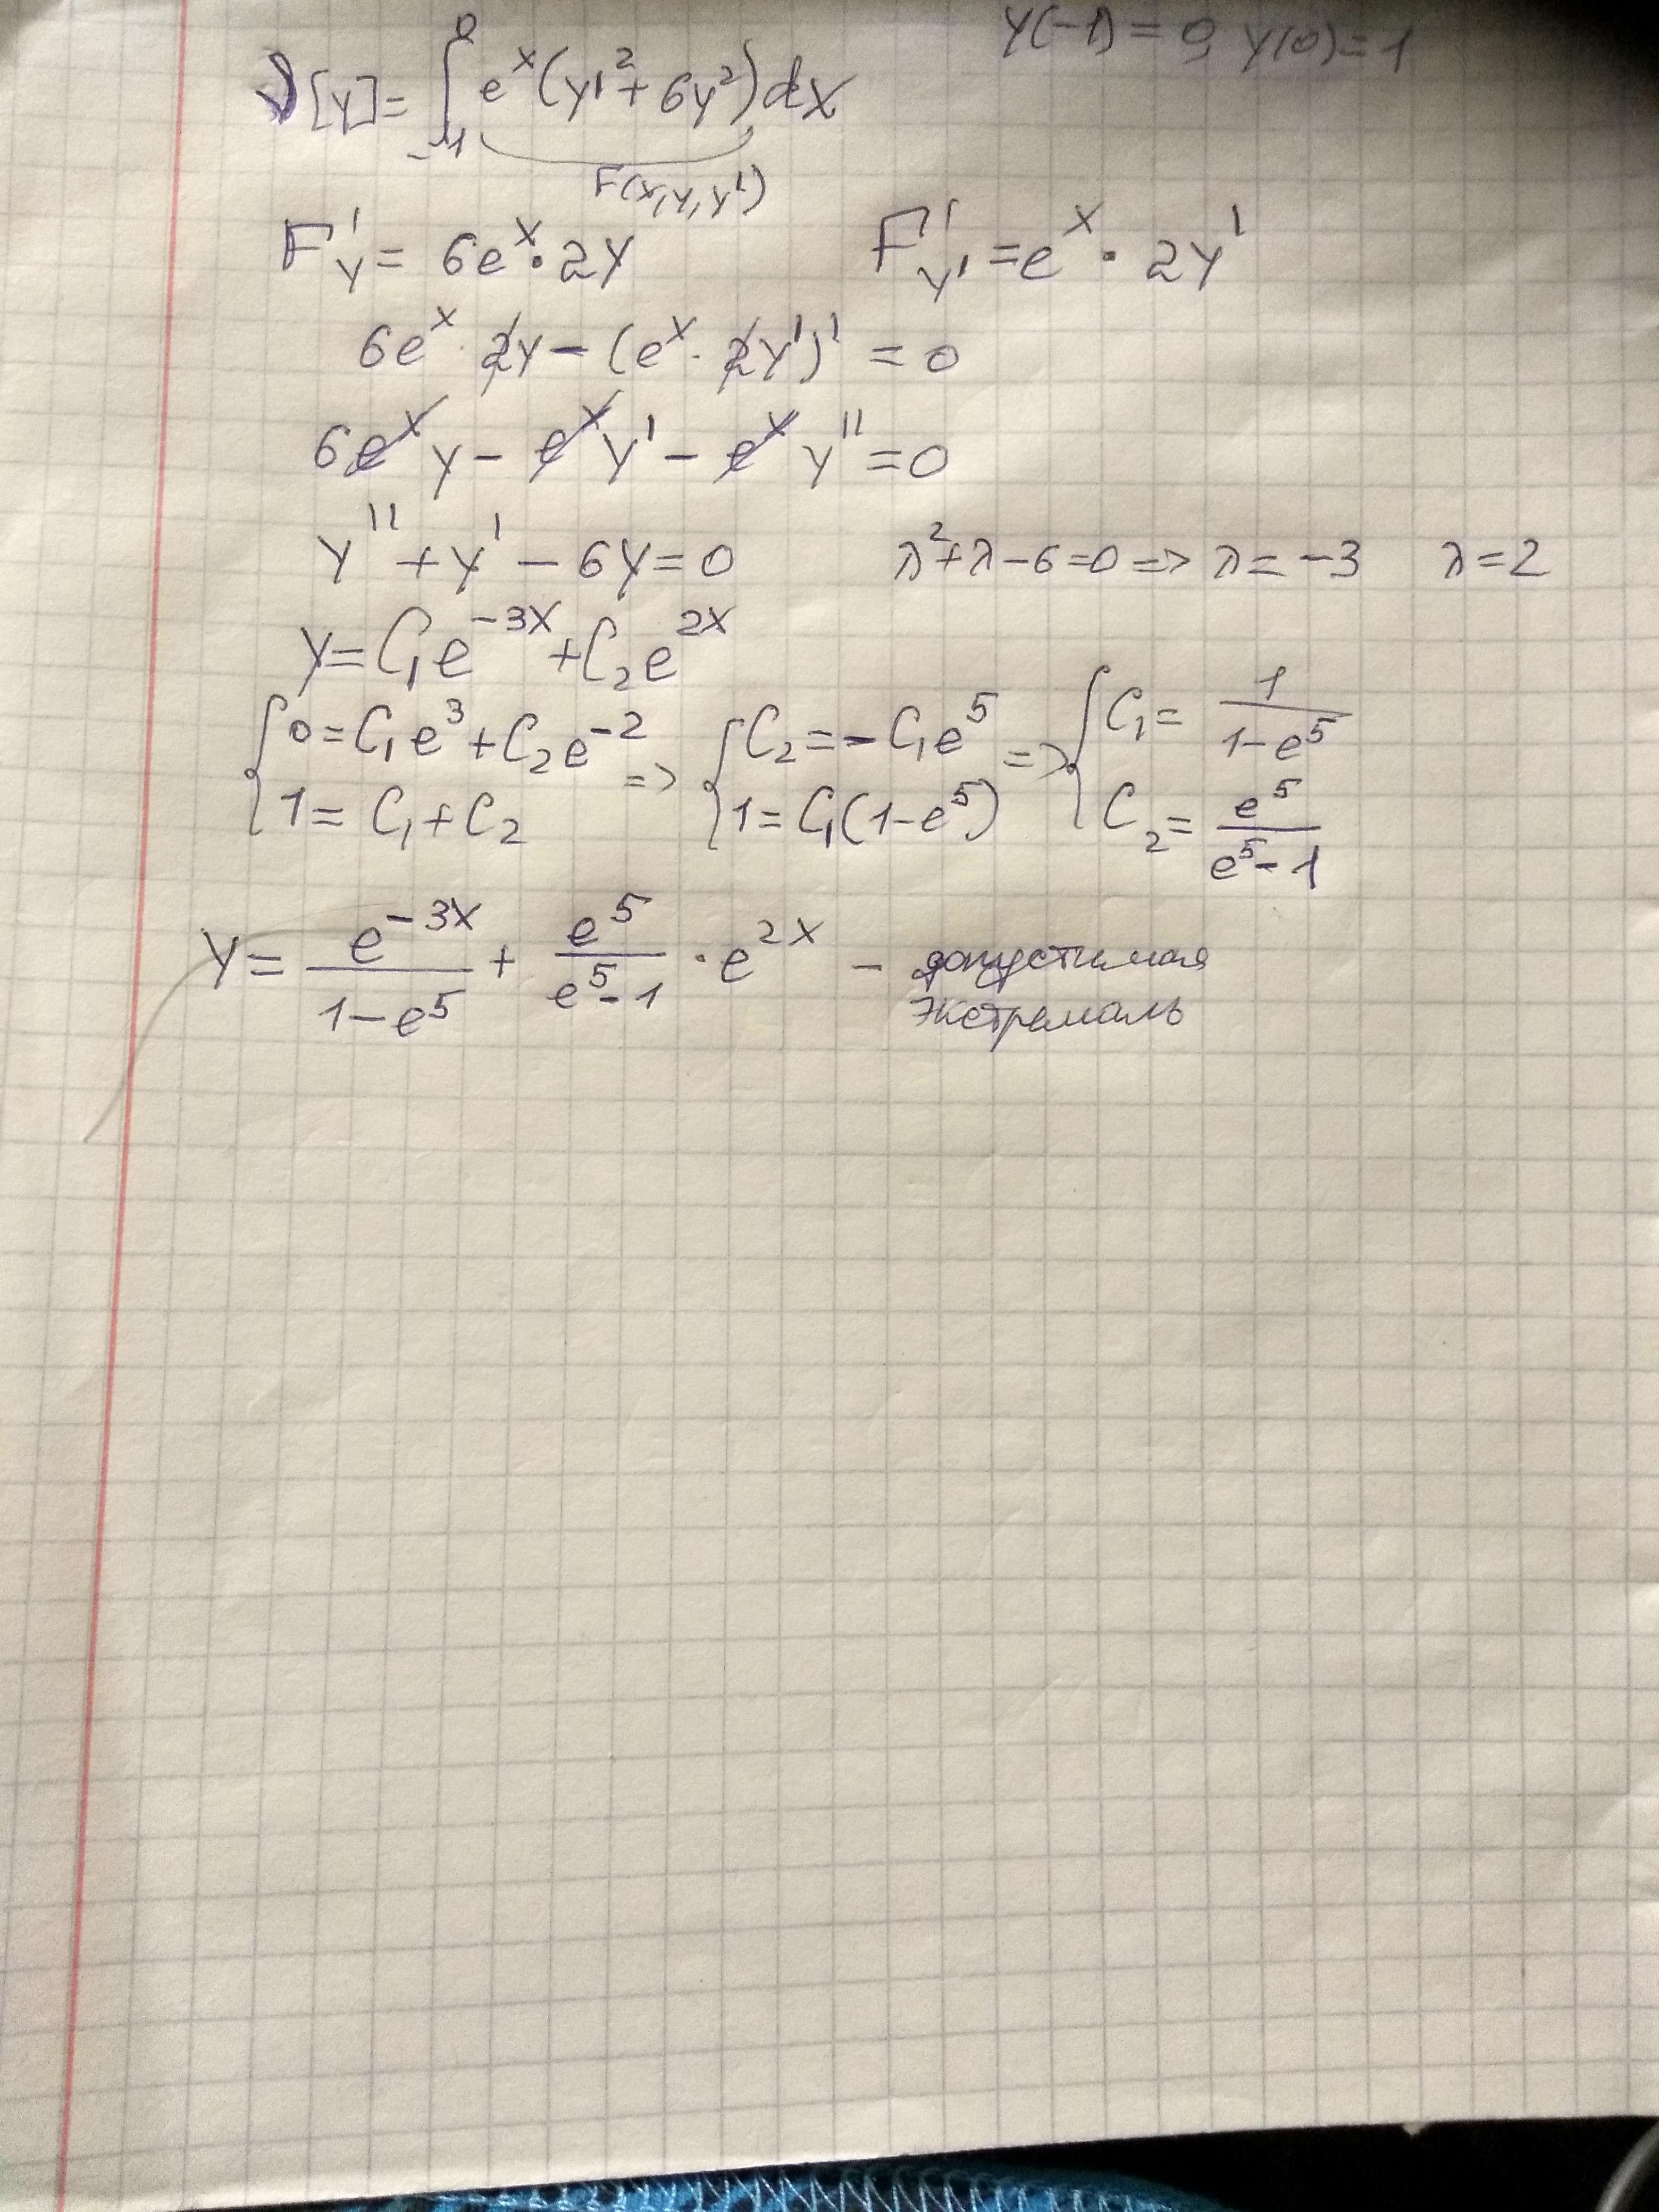 J[y] = ∫_{-1}^{0} e^x (y'^2 + 6y^2) dx y(-1) = 0, y(0) = 1
F(x, y, y')
F'_y = 6e^x · 2y F'_{y'} = e^x · 2y'
6e^x · 2y - (e^x · 2y')' = 0
6e^x y - e^x y' - e^x y'' = 0
y'' + y' - 6y = 0 λ^2 + λ - 6 = 0 => λ = -3 λ = 2
y = C_1 e^{-3x} + C_2 e^{2x}
{ 0 = C_1 e^3 + C_2 e^{-2} => { C_2 = -C_1 e^5 => { C_1 = 1/(1-e^5)
1 = C_1 + C_2 1 = C_1(1-e^5) C_2 = e^5/(e^5-1)
y = e^{-3x}/(1-e^5) + e^5/(e^5-1) · e^{2x} - допустимая
экстремаль